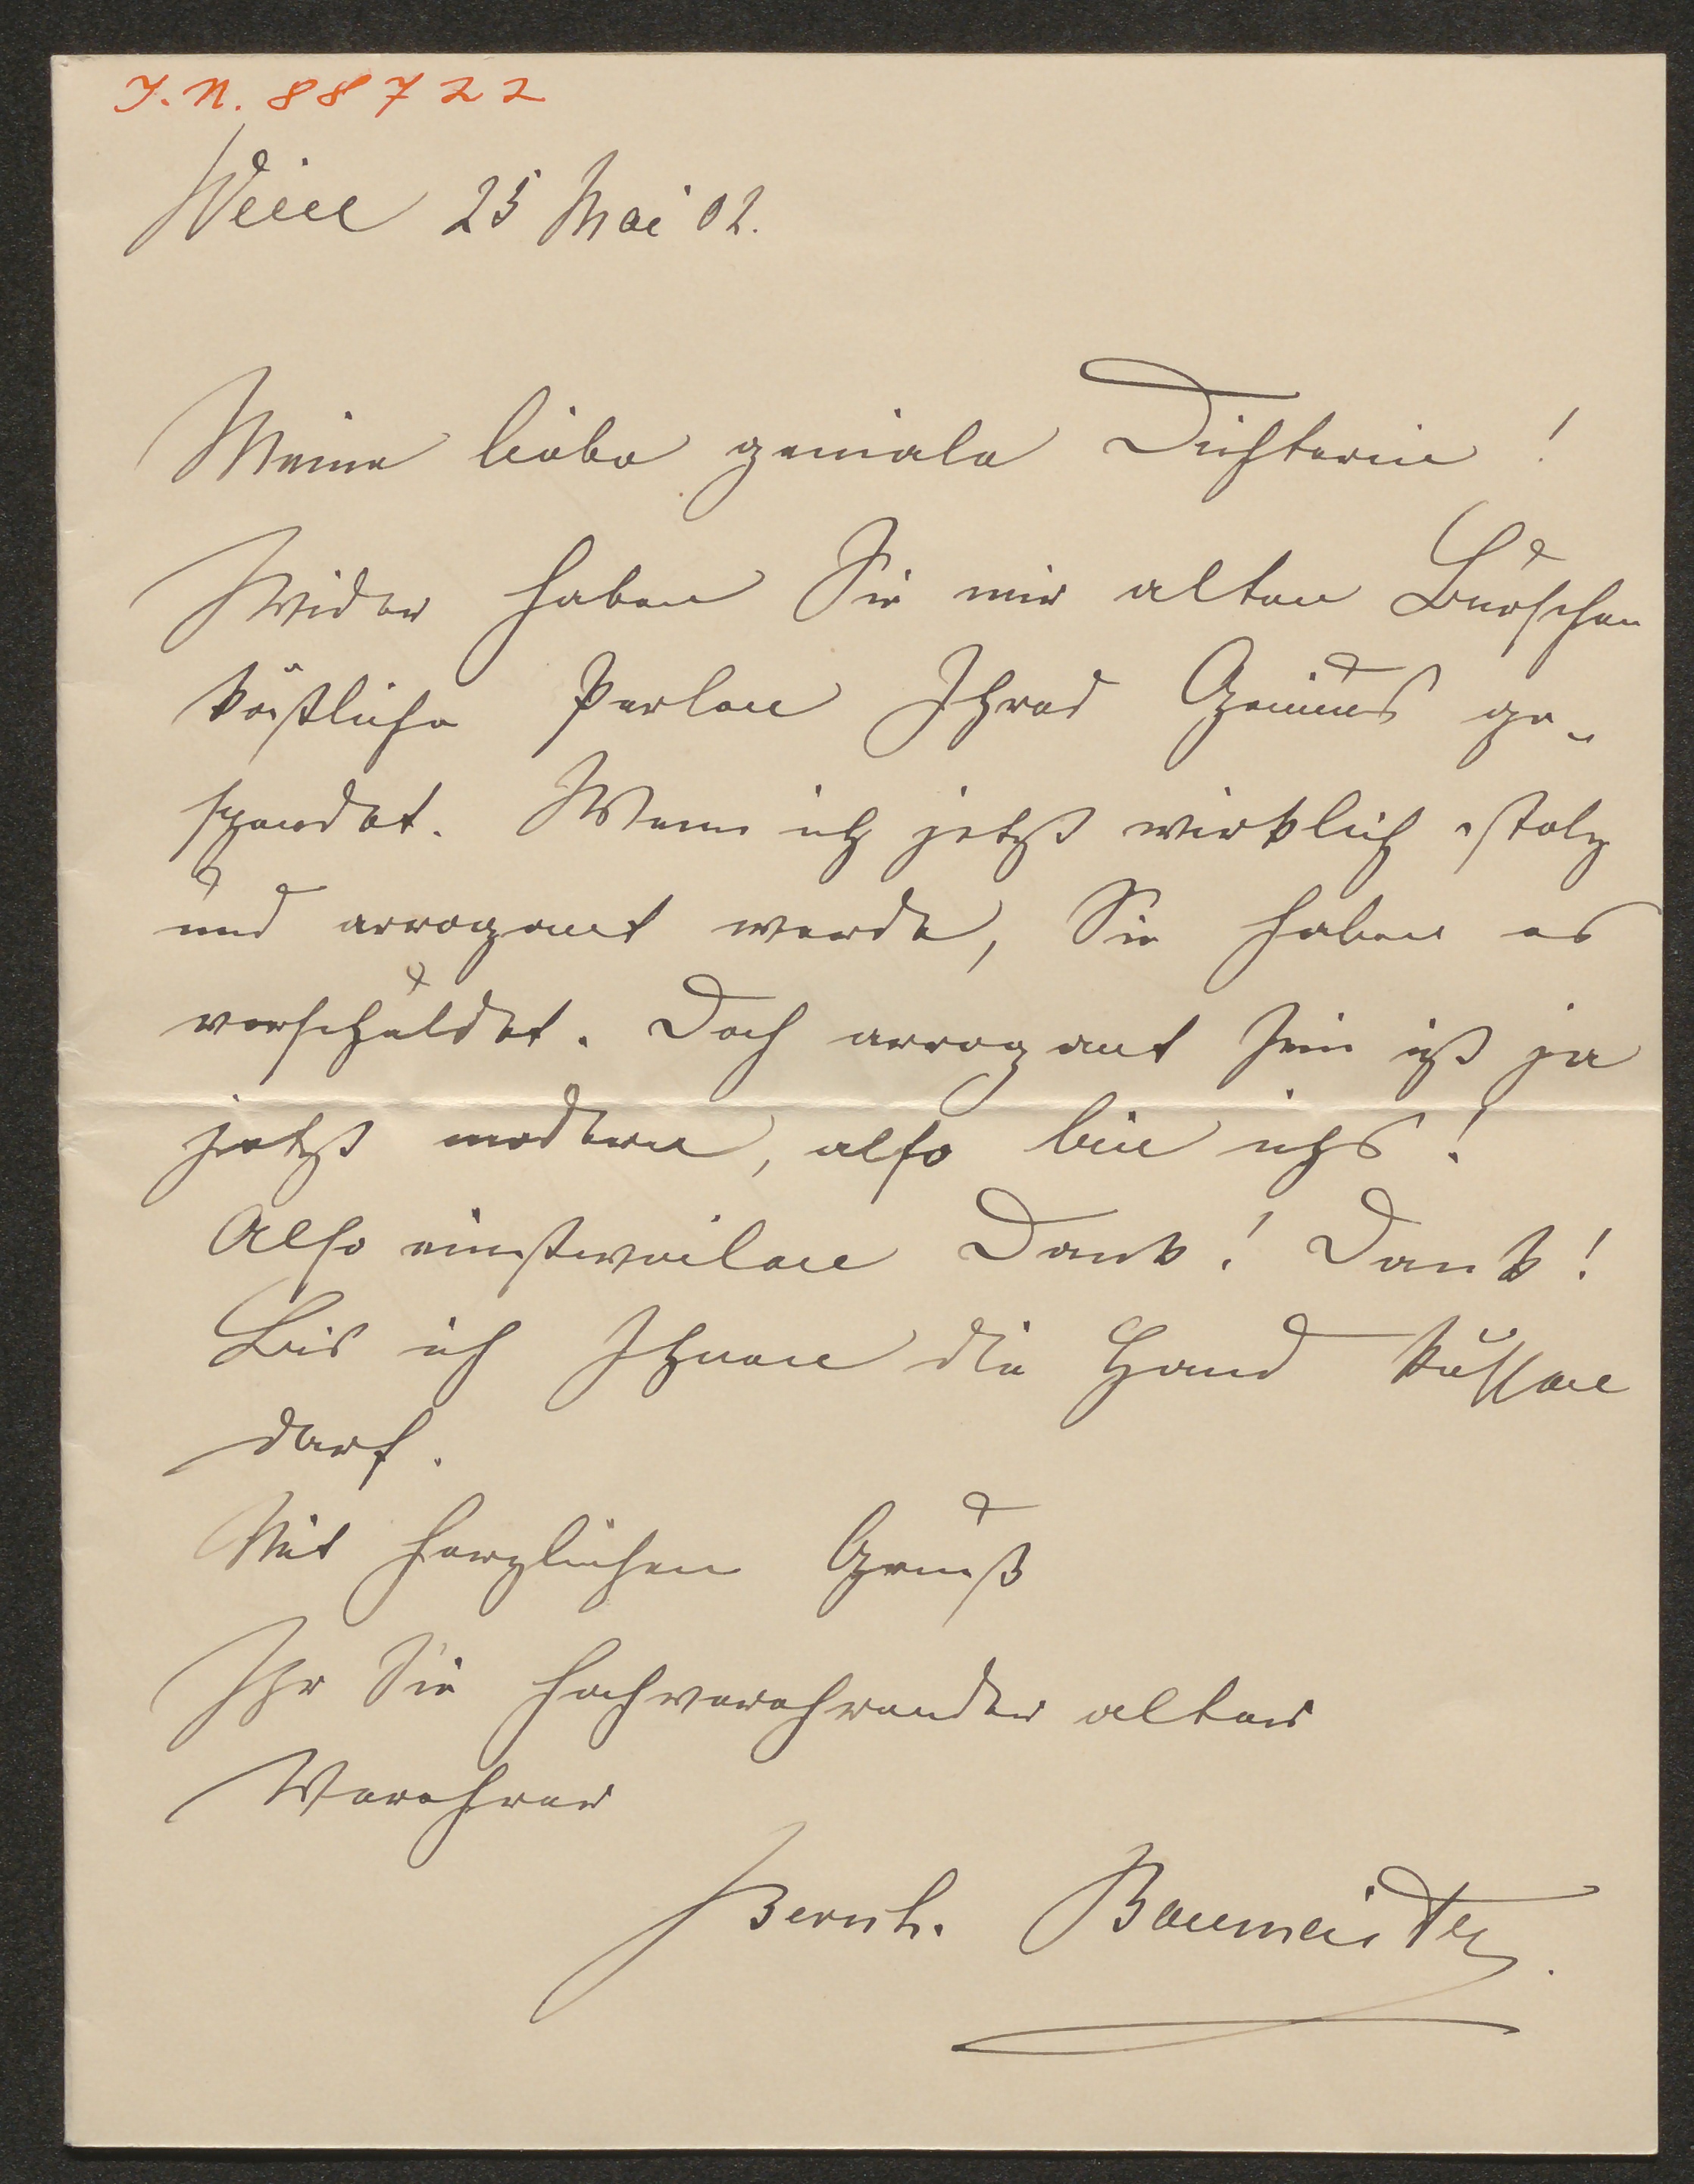 I.N. 88722
Wien 25 Mai 02.
Meine liebe geniale Dichterin!
Wider haben Sie mir alten Burschen
köstliche Perlen Ihres Genius ge-
spendet. Wenn ich jetzt wirklich stolz
und arrogant werde, Sie haben es
verschuldet. Doch arrogant sein ist ja
jetzt modern, also bin ichs!
Also einstweilen Dank! Dank!
Bis ich Ihnen die Hand küssen
darf.
Mit herzlichen Gruß
Ihr Sie hochverehrender alter
Verehrer
Bernh. Baumeister.